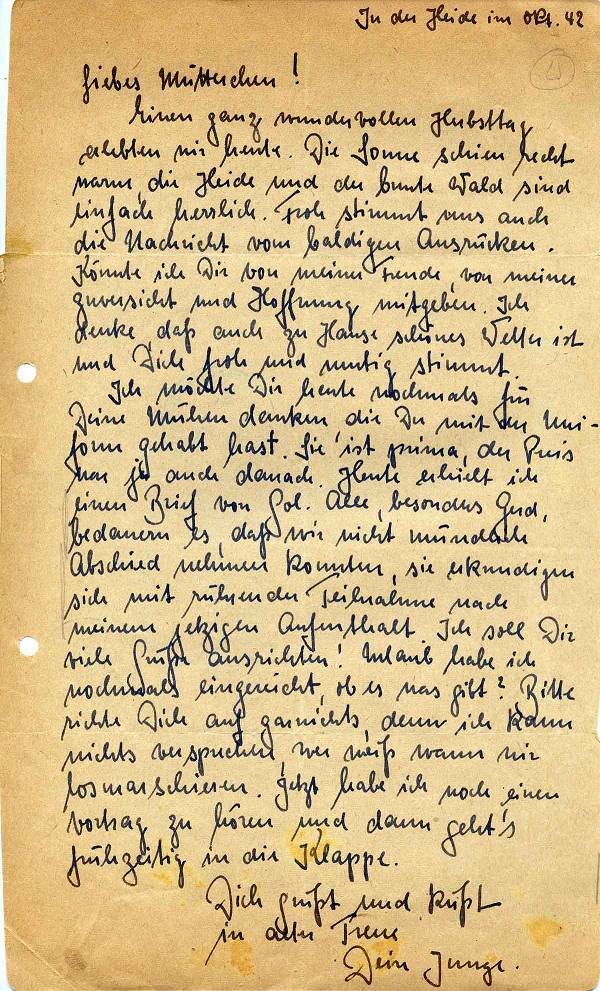 In der Heide im Okt. 42
Liebes Mütterchen!
Einen ganz wundervollen Herbsttag
erlebten wir heute. Die Sonne schien recht
warm, die Heide und der bunte Wald sind
einfach herrlich. Froh stimmt uns auch
die Nachricht vom baldigen Ausrücken.
Könnte ich Dir von meiner Freude, von meiner
Zuversicht und Hoffnung mitgeben. Ich
denke daß auch zu Hause schönes Wetter ist
und Dich froh und mutig stimmt.
Ich möchte Dir heute nochmals für
Deine Mühen danken die Du mit der Uni-
form gehabt hast. Sie ist prima, der Preis
war ja auch danach. Heute erhielt ich
einen Brief von Gol. Alle, besonders Gerd,
bedauern es, daß wir nicht mündlich
Abschied nehmen konnten, sie erkundigen
sich mit rührender Teilnahme nach
meinem jetzigen Aufenthalt. Ich soll Dir
viele Grüße ausrichten! Urlaub habe ich
nochmals eingereicht, ob es was gibt? Bitte
richte Dich auf garnichts, denn ich kann
nichts versprechen, wer weiß wann wir
losmarschieren. Jetzt habe ich noch einen
Vortrag zu hören und dann geht's
frühzeitig in die Klappe.
Dich grüßt und küßt
in alter Treue
Dein Junge.